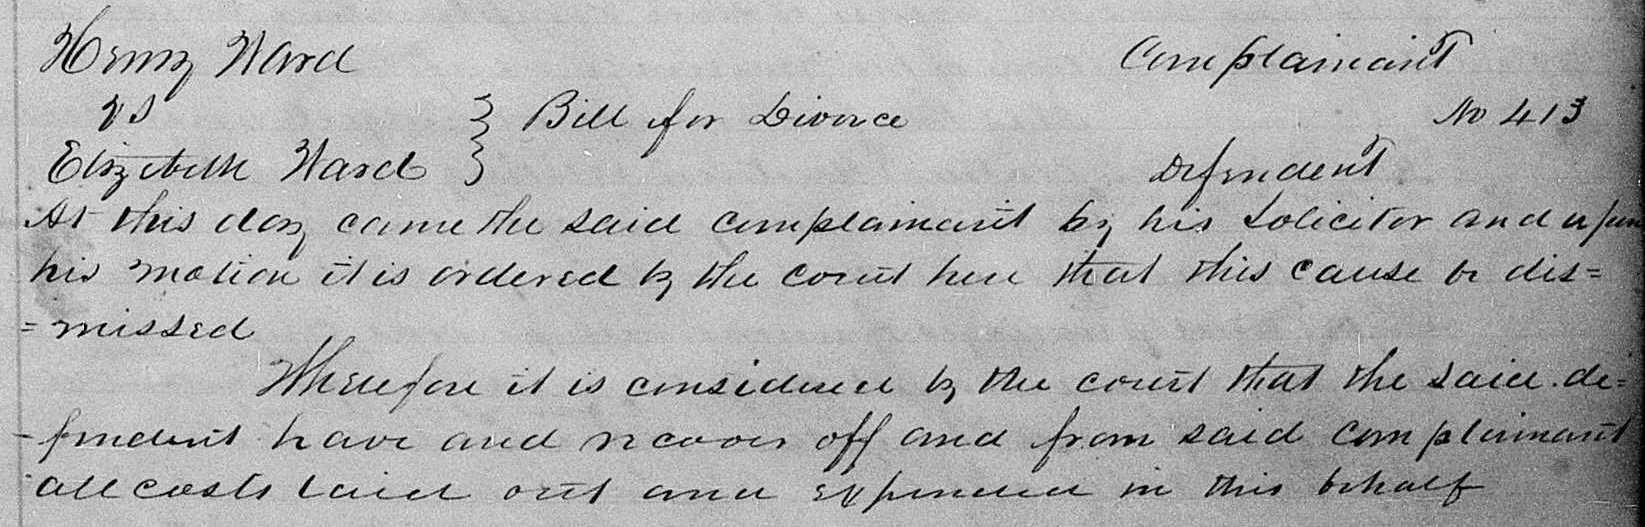 Henry Ward Complainant
vs } Bill for Divorce No 413
Elizabeth Ward } Defendent
At this day came the said complainant by his Solicitor and upon
his motion it is ordered by the court here that this cause be dis=
=missed
Wherefore it is considered by the court that the said de=
-fendent have and recover off and from said complainant
all costs laid out and expended in this behalf